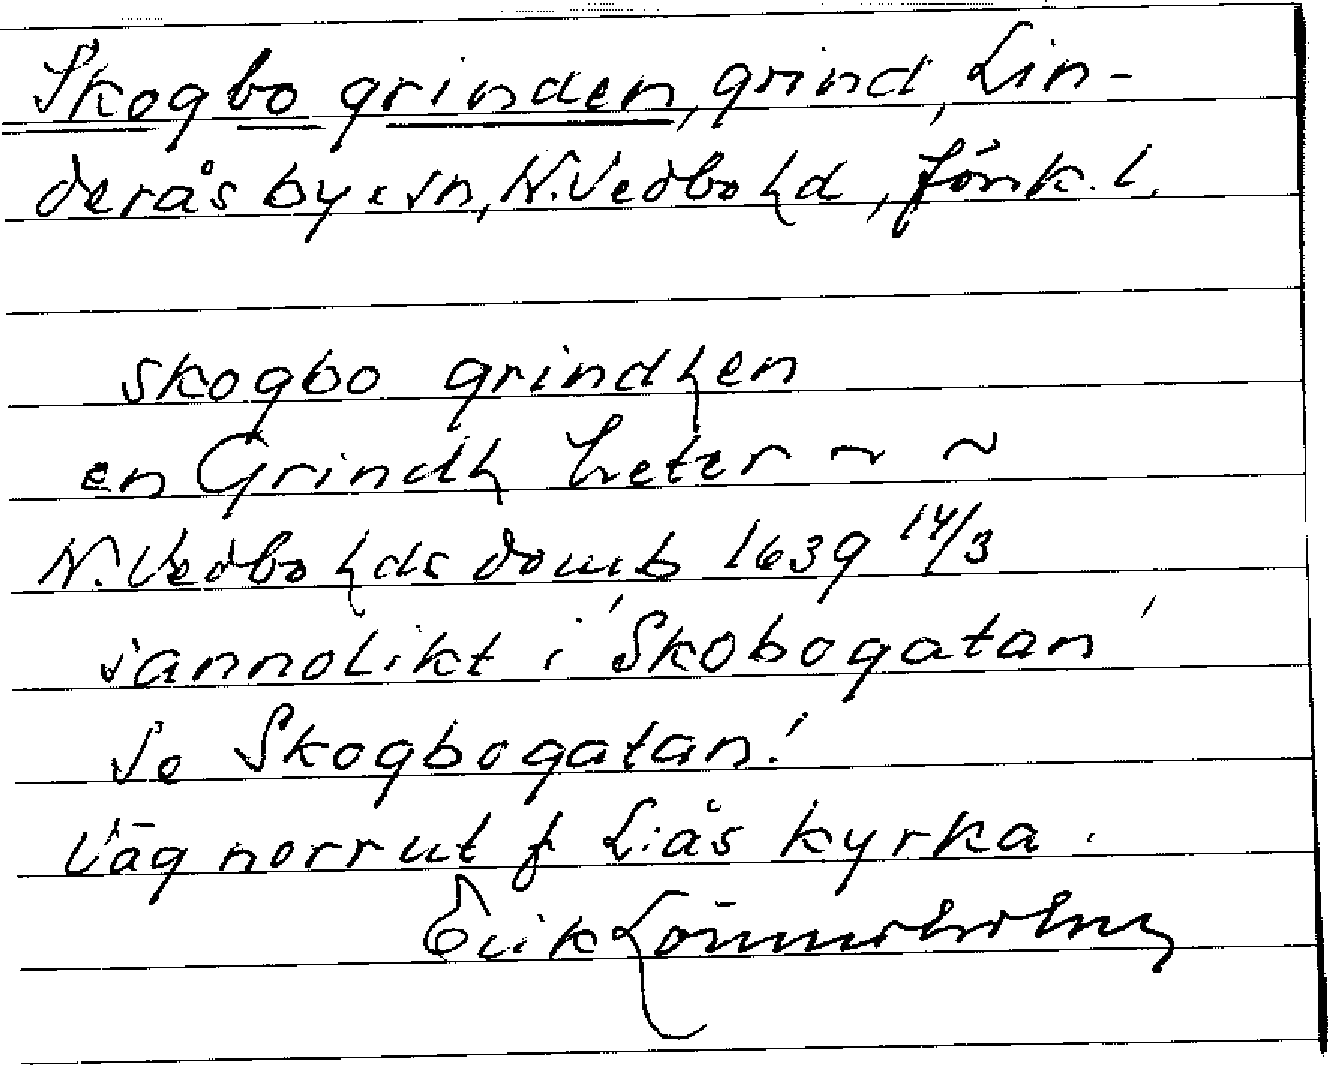 Skogbo grinden, grind, Lin-
derås by o sn, N. Vedbo hd, Jönk. l.
skogbo grindhen
en Grindh heter ~ ~
N. Vedbo hds domb 1639 14/3
sannolikt i 'Skobogatan'
Se Skogbogatan!
Väg norrut f L:ås kyrka.
Erik